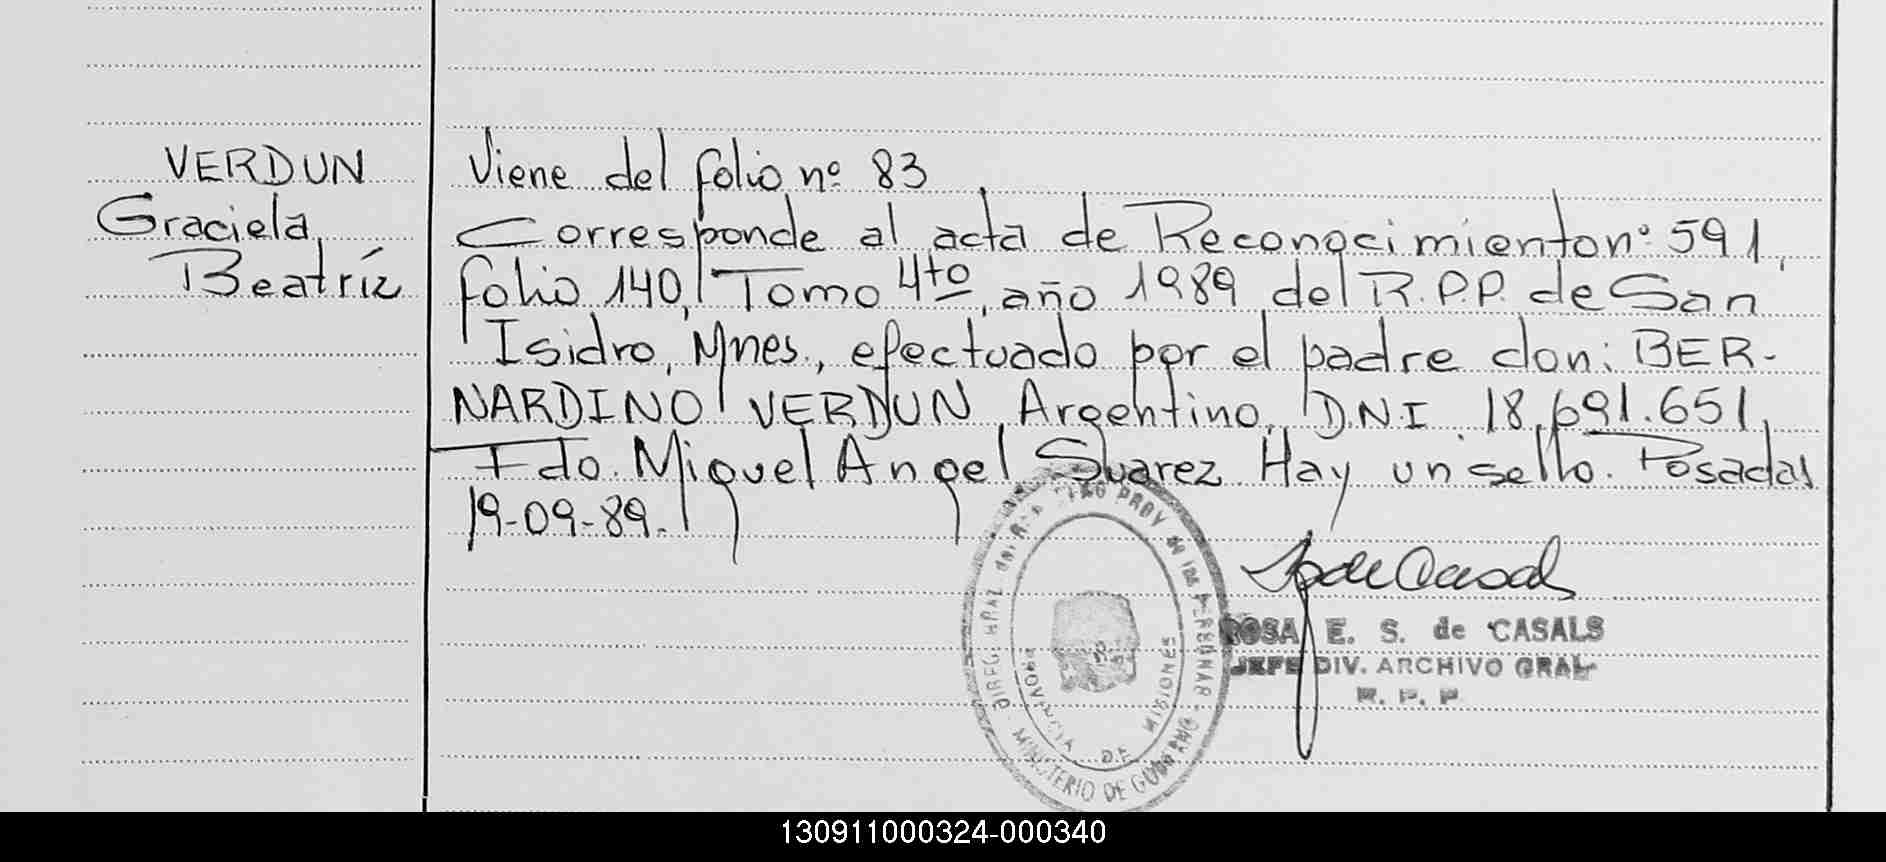 VERDUN
Graciela
Beatríz
Viene del folio nº 83
Corresponde al acta de Reconocimiento nº 591,
folio 140, Tomo 4to, año 1989 del R.P.P. de San
Isidro, Mnes., efectuado por el padre don: BER-
NARDINO VERDUN, Argentino, D.N.I. 18.691.651,
Fdo. Miguel Angel Suarez Hay un sello. Posadas
19-09-89.
PROV de las PERSONAS - MINISTERIO DE GOBIERNO
PROVINCIA DE MISIONES
ROSA E. S. de CASALS
JEFE DIV. ARCHIVO GRAL
R. P. P
130911000324-000340